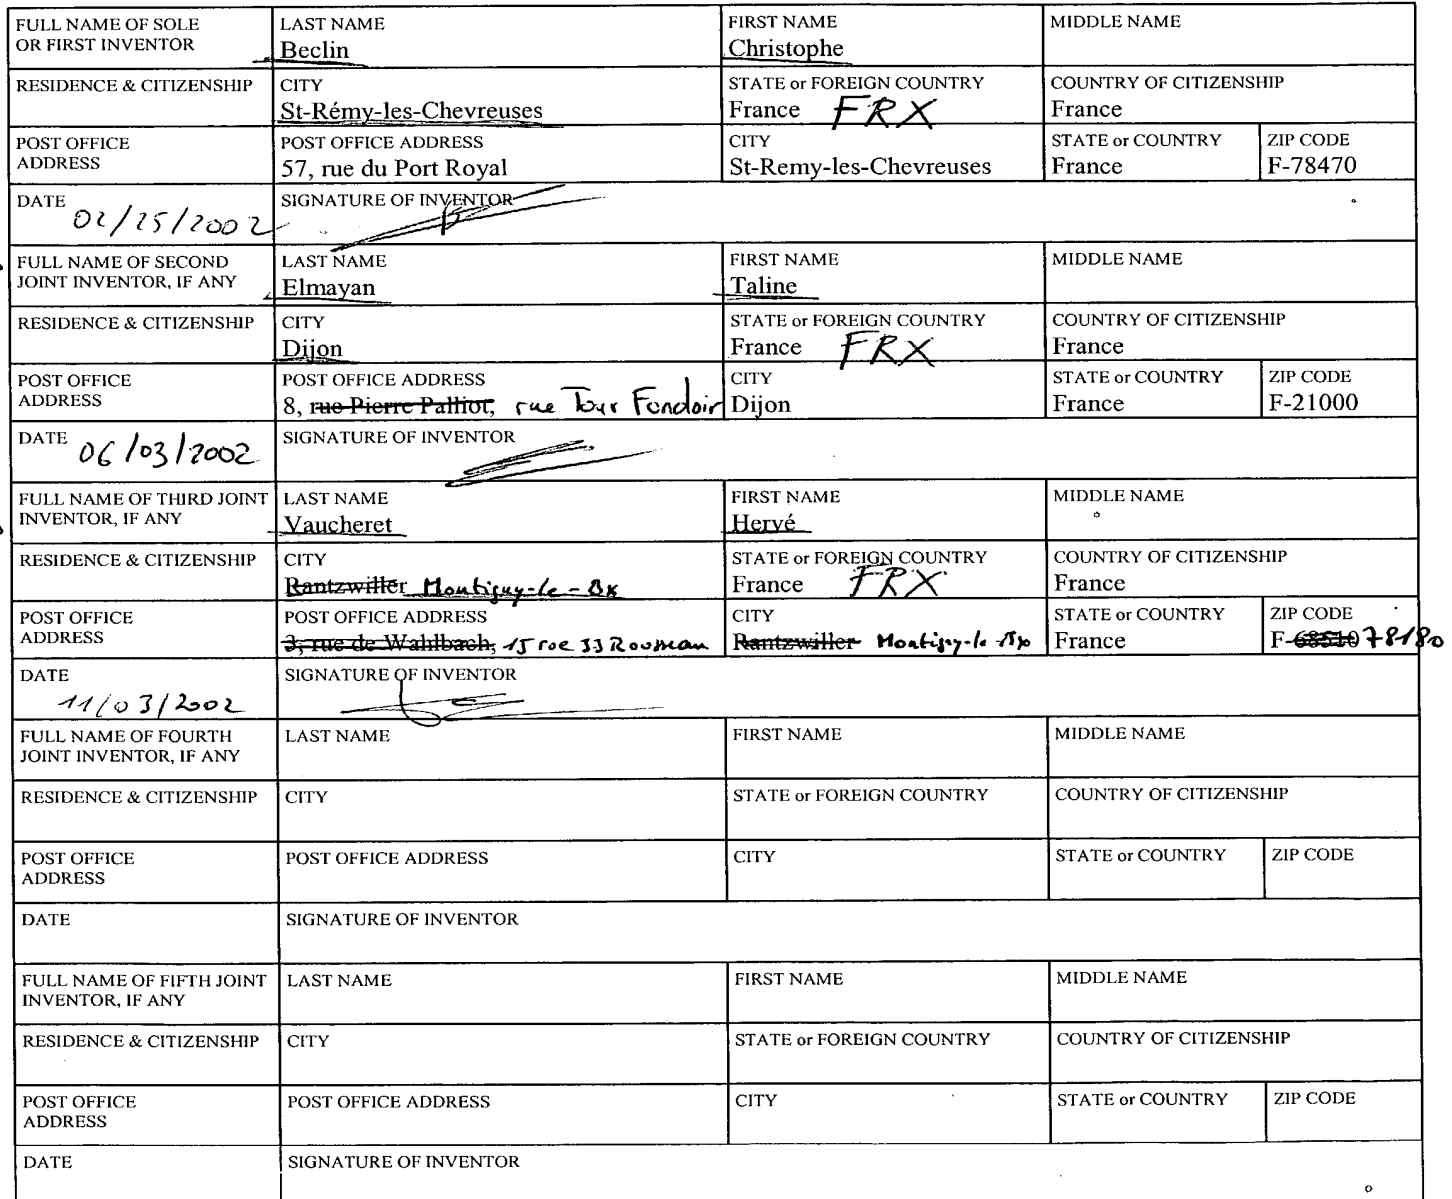 FULL NAME OF SOLE OR FIRST INVENTOR
LAST NAME
Beclin
FIRST NAME
Christophe
MIDDLE NAME
RESIDENCE & CITIZENSHIP
CITY
St-Rémy-les-Chevreuses
STATE or FOREIGN COUNTRY
France FRX
COUNTRY OF CITIZENSHIP
France
POST OFFICE ADDRESS
POST OFFICE ADDRESS
57, rue du Port Royal
CITY
St-Remy-les-Chevreuses
STATE or COUNTRY
France
ZIP CODE
F-78470
DATE 02/25/2002
SIGNATURE OF INVENTOR
FULL NAME OF SECOND JOINT INVENTOR, IF ANY
LAST NAME
Elmayan
FIRST NAME
Taline
MIDDLE NAME
RESIDENCE & CITIZENSHIP
CITY
Dijon
STATE or FOREIGN COUNTRY
France FRX
COUNTRY OF CITIZENSHIP
France
POST OFFICE ADDRESS
POST OFFICE ADDRESS
8, rue Pierre Palliot, rue Tour Fondoir
CITY
Dijon
STATE or COUNTRY
France
ZIP CODE
F-21000
DATE 06/03/2002
SIGNATURE OF INVENTOR
FULL NAME OF THIRD JOINT INVENTOR, IF ANY
LAST NAME
Vaucheret
FIRST NAME
Hervé
MIDDLE NAME
RESIDENCE & CITIZENSHIP
CITY
Rantzwiller Montigny-le-Bx
STATE or FOREIGN COUNTRY
France FRX
COUNTRY OF CITIZENSHIP
France
POST OFFICE ADDRESS
POST OFFICE ADDRESS
3, rue de Wahlbach, 15 rue JJ Rousseau
CITY
Rantzwiller Montigny-le-Bx
STATE or COUNTRY
France
ZIP CODE
F-68510 78180
DATE
11/03/2002
SIGNATURE OF INVENTOR
FULL NAME OF FOURTH JOINT INVENTOR, IF ANY
LAST NAME
FIRST NAME
MIDDLE NAME
RESIDENCE & CITIZENSHIP
CITY
STATE or FOREIGN COUNTRY
COUNTRY OF CITIZENSHIP
POST OFFICE ADDRESS
POST OFFICE ADDRESS
CITY
STATE or COUNTRY
ZIP CODE
DATE
SIGNATURE OF INVENTOR
FULL NAME OF FIFTH JOINT INVENTOR, IF ANY
LAST NAME
FIRST NAME
MIDDLE NAME
RESIDENCE & CITIZENSHIP
CITY
STATE or FOREIGN COUNTRY
COUNTRY OF CITIZENSHIP
POST OFFICE ADDRESS
POST OFFICE ADDRESS
CITY
STATE or COUNTRY
ZIP CODE
DATE
SIGNATURE OF INVENTOR